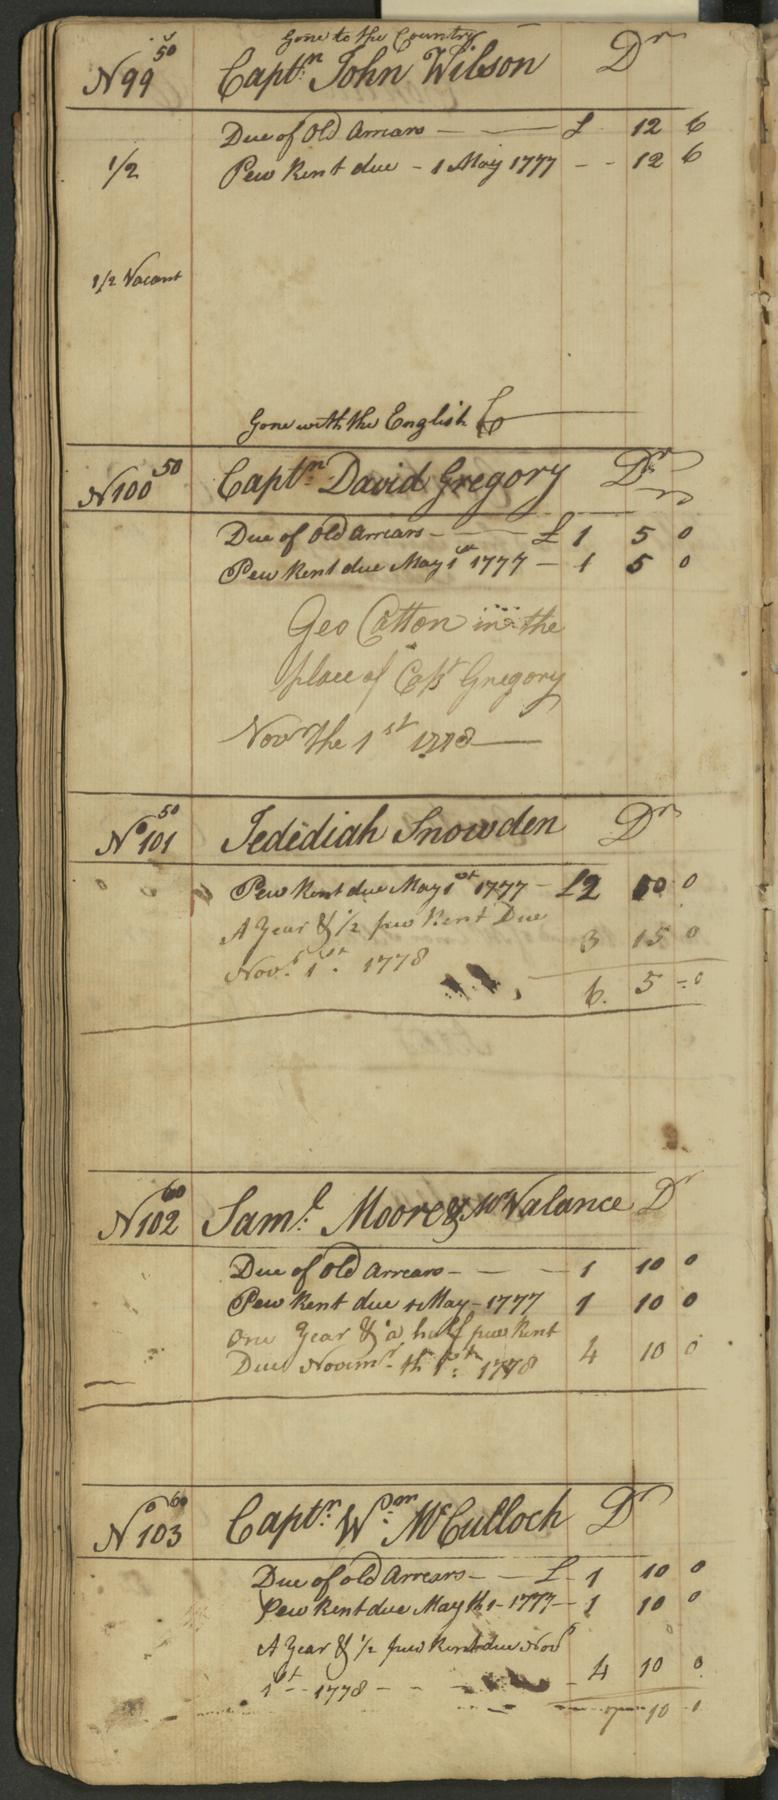 Gone to the Country
N 99 50 Captn. John Wilson Dr
Due of Old Arrears — — £ 12 6
1/2 Pew Rent due - 1 May 1777 - - 12 6
1/2 Vacant
Gone with the English
N 100 50 Captn. David Gregory Dr
Due of Old Arrears — — £ 1 5 0
Pew Rent due May 1st 1777 — 1 5 0
Geo Catton in the
place of Capt Gregory
Novr the 1st 1778 —
No 101 50 Jedidiah Snowden Dr
Pew Rent due May 1st 1777 - £2 10 0
A Year & 1/2 pew Rent Due 3 15 0
Novr. 1st. 1778
6. 5 - 0
N 102 60 Saml. Moore & Mc Valance Dr
Due of Old Arrears - — — 1 10 0
Pew Rent due 1 May - 1777 1 10 0
One Year & a half pew Rent
Due Novemr. th 1st. 1778 4 10 0
No 103 60 Captn. Wm. McCulloch Dr
Due of old Arrears - — £ 1 10 0
Pew Rent due May th 1 - 1777 - 1 10 0
A Year & 1/2 pew Rent due Novr
1st - 1778 - - 4 10 0
7 10 0